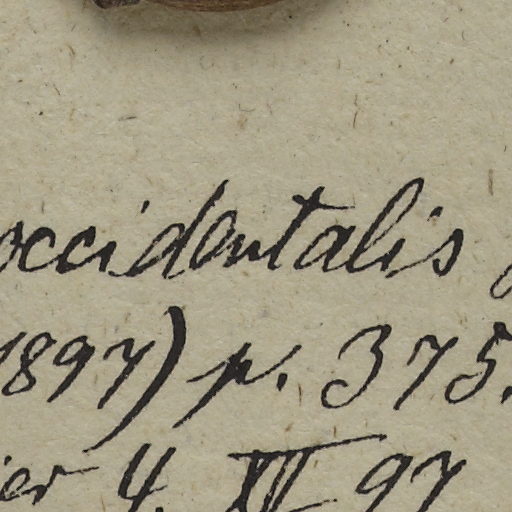 occidentalis
1897) p. 375.
4. XII 97